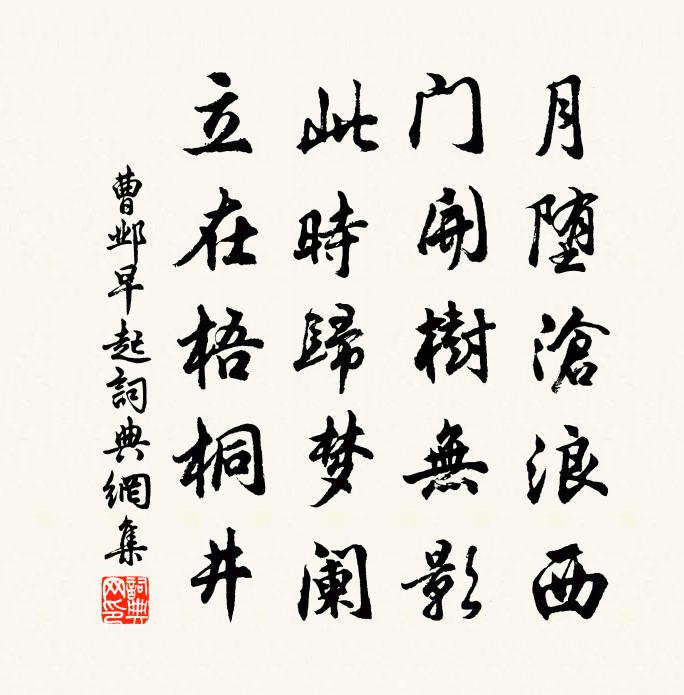 月堕滄浪西
门開樹無影
此時歸梦阑
立在梧桐井
曹邺早起詞典網集
詞典网印